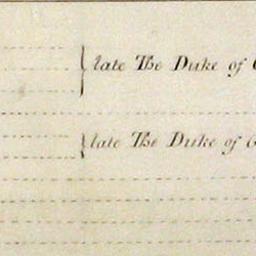 late The Duke of
late The Duke of G